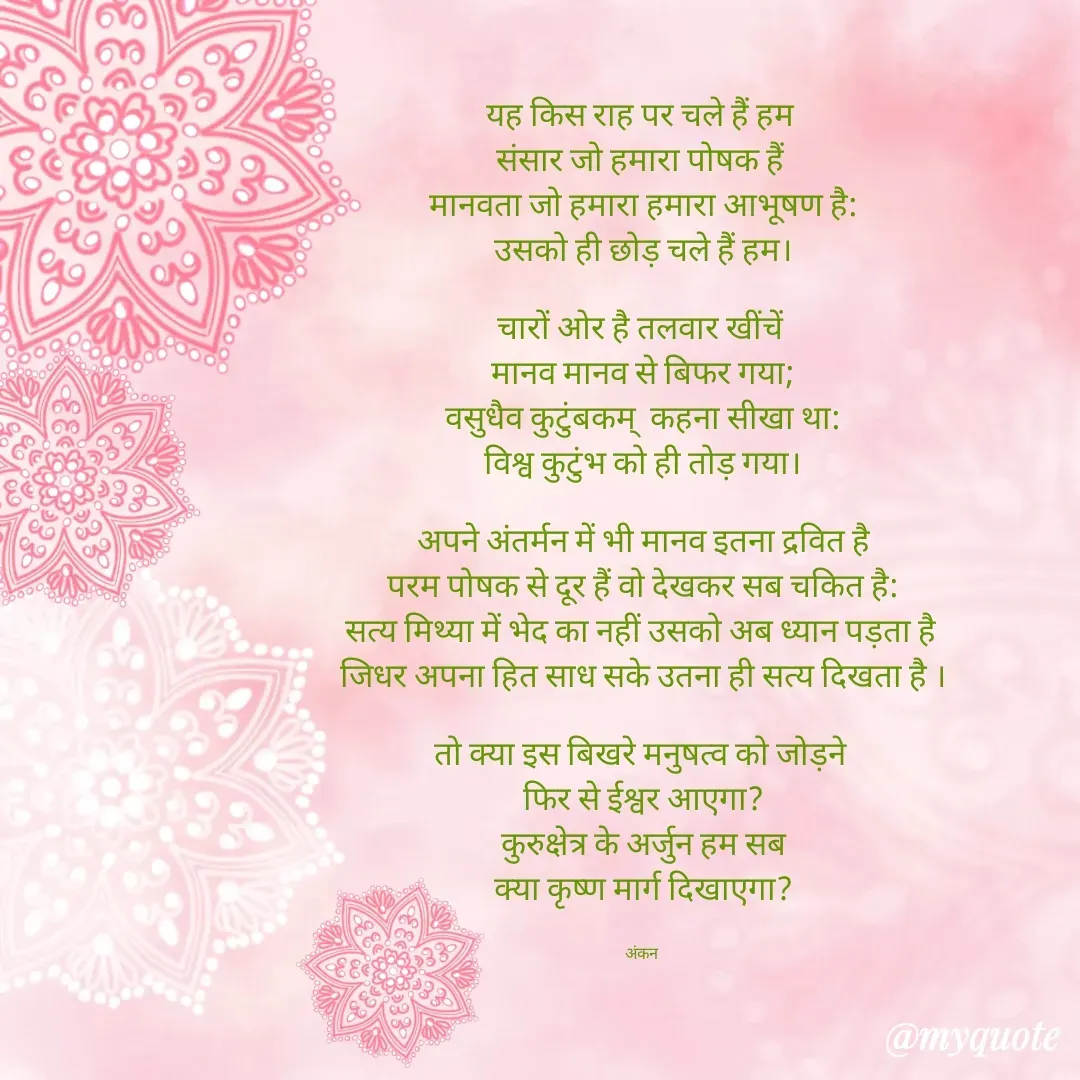 यह किस राह पर चले हैं हम
संसार जो हमारा पोषक हैं
मानवता जो हमारा हमारा आभूषण है:
उसको ही छोड़ चले हैं हम।
चारों ओर है तलवार खींचें
मानव मानव से बिफर गया;
वसुधैव कुटुंबकम् कहना सीखा था:
विश्व कुटुंभ को ही तोड़ गया।
अपने अंतर्मन में भी मानव इतना द्रवित है
परम पोषक से दूर हैं वो देखकर सब चकित है:
सत्य मिथ्या में भेद का नहीं उसको अब ध्यान पड़ता है
जिधर अपना हित साध सके उतना ही सत्य दिखता है ।
तो क्या इस बिखरे मनुषत्व को जोड़ने
फिर से ईश्वर आएगा?
कुरुक्षेत्र के अर्जुन हम सब
क्या कृष्ण मार्ग दिखाएगा?
अंकन
@myquote